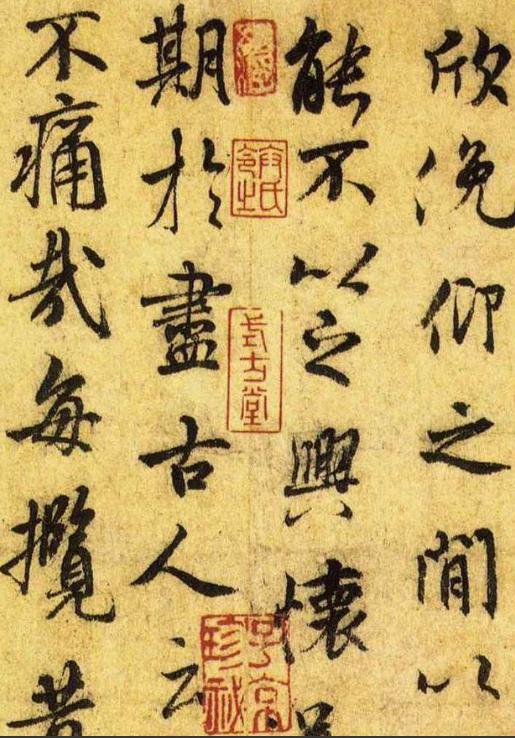 欣俛仰之閒以
能不以之興懷
期於盡古人云
不痛哉每攬昔